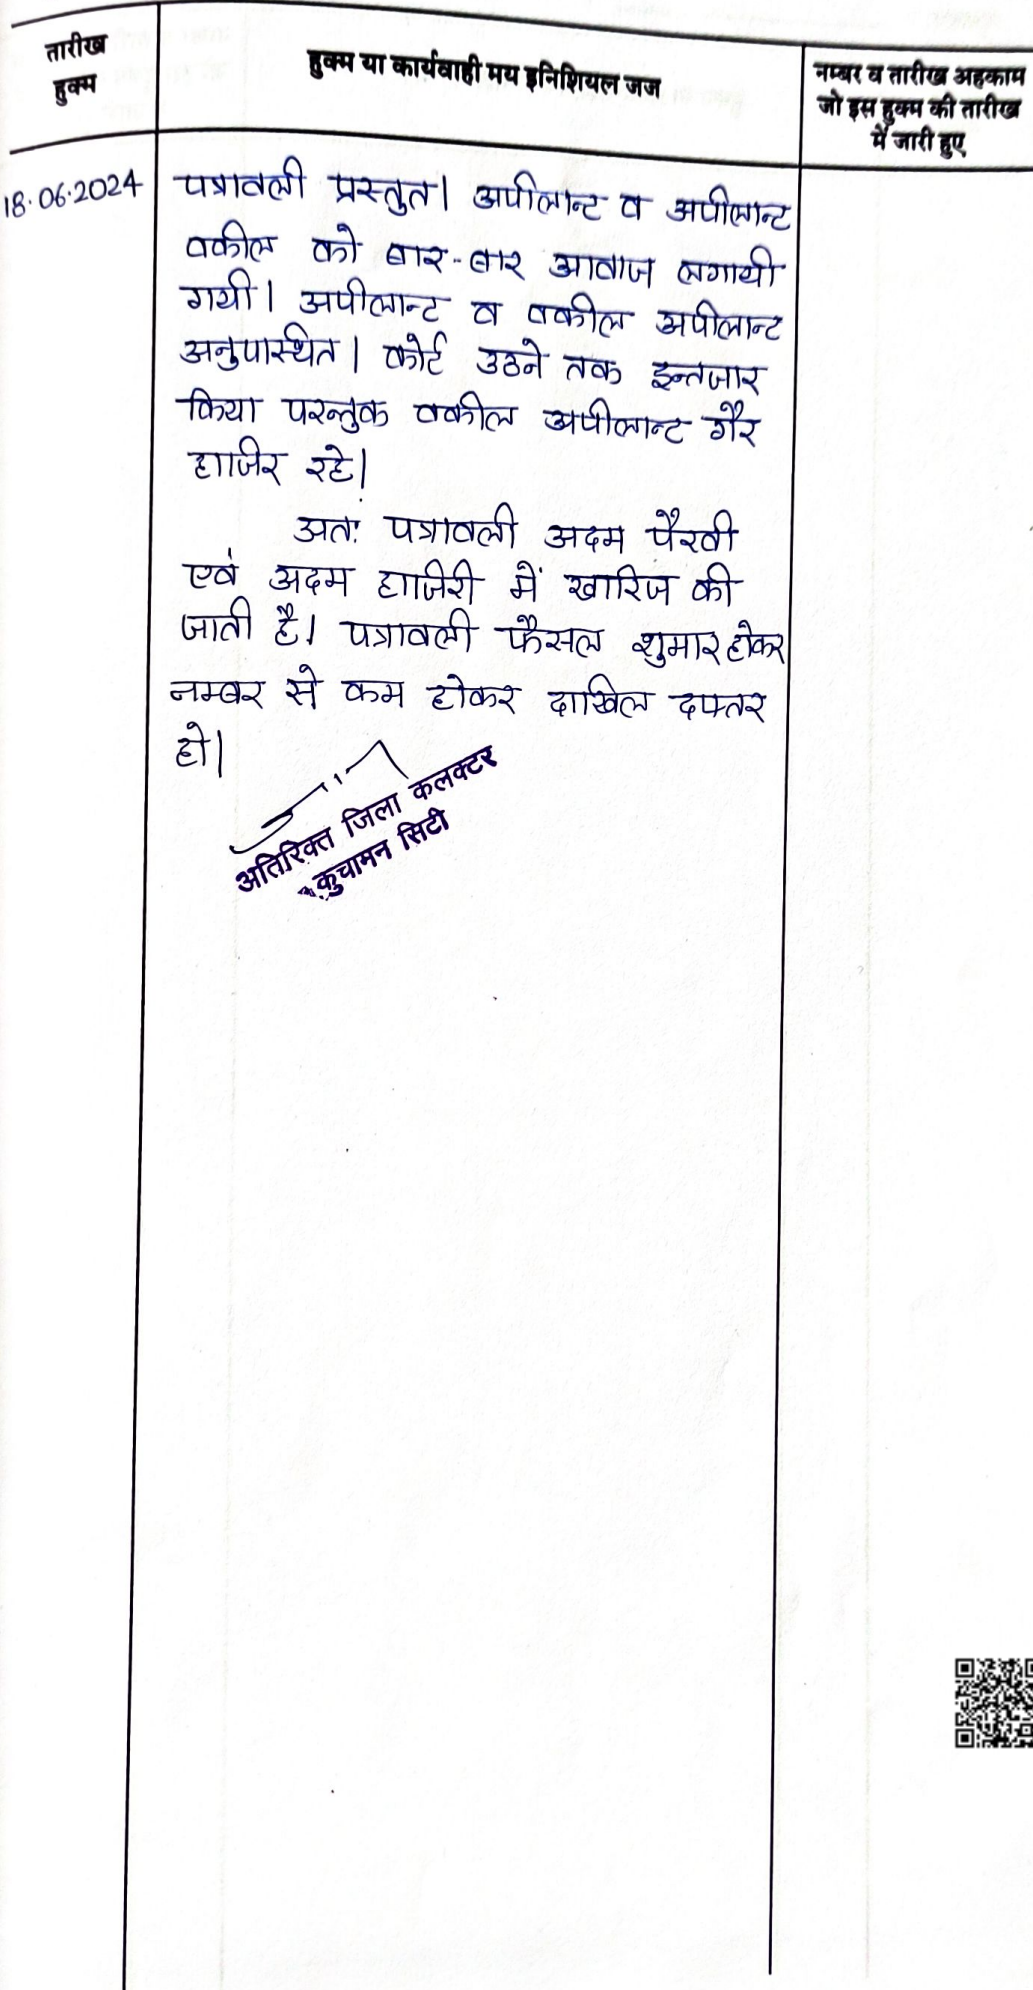 तारीख
हुक्म
हुक्म या कार्यवाही मय इनिशियल जज
नम्बर व तारीख अहकाम
जो इस हुक्म की तारीख
में जारी हुए
18.06.2024
पत्रावली प्रस्तुत। अपीलान्ट व अपीलान्ट
वकील को बार-बार आवाज लगायी
गयी। अपीलान्ट व वकील अपीलान्ट
अनुपास्थित। कोर्ट उठने तक इन्तजार
किया परन्तुक वकील अपीलान्ट गैर
हाजिर रहे।
अतः पत्रावली अदम पैरवी
एवं अदम हाजिरी में खारिज की
जाती है। पत्रावली फैसल शुमार होकर
नम्बर से कम होकर दाखिल दफ्तर
हो।
अतिरिक्त जिला कलक्टर
कुचामन सिटी